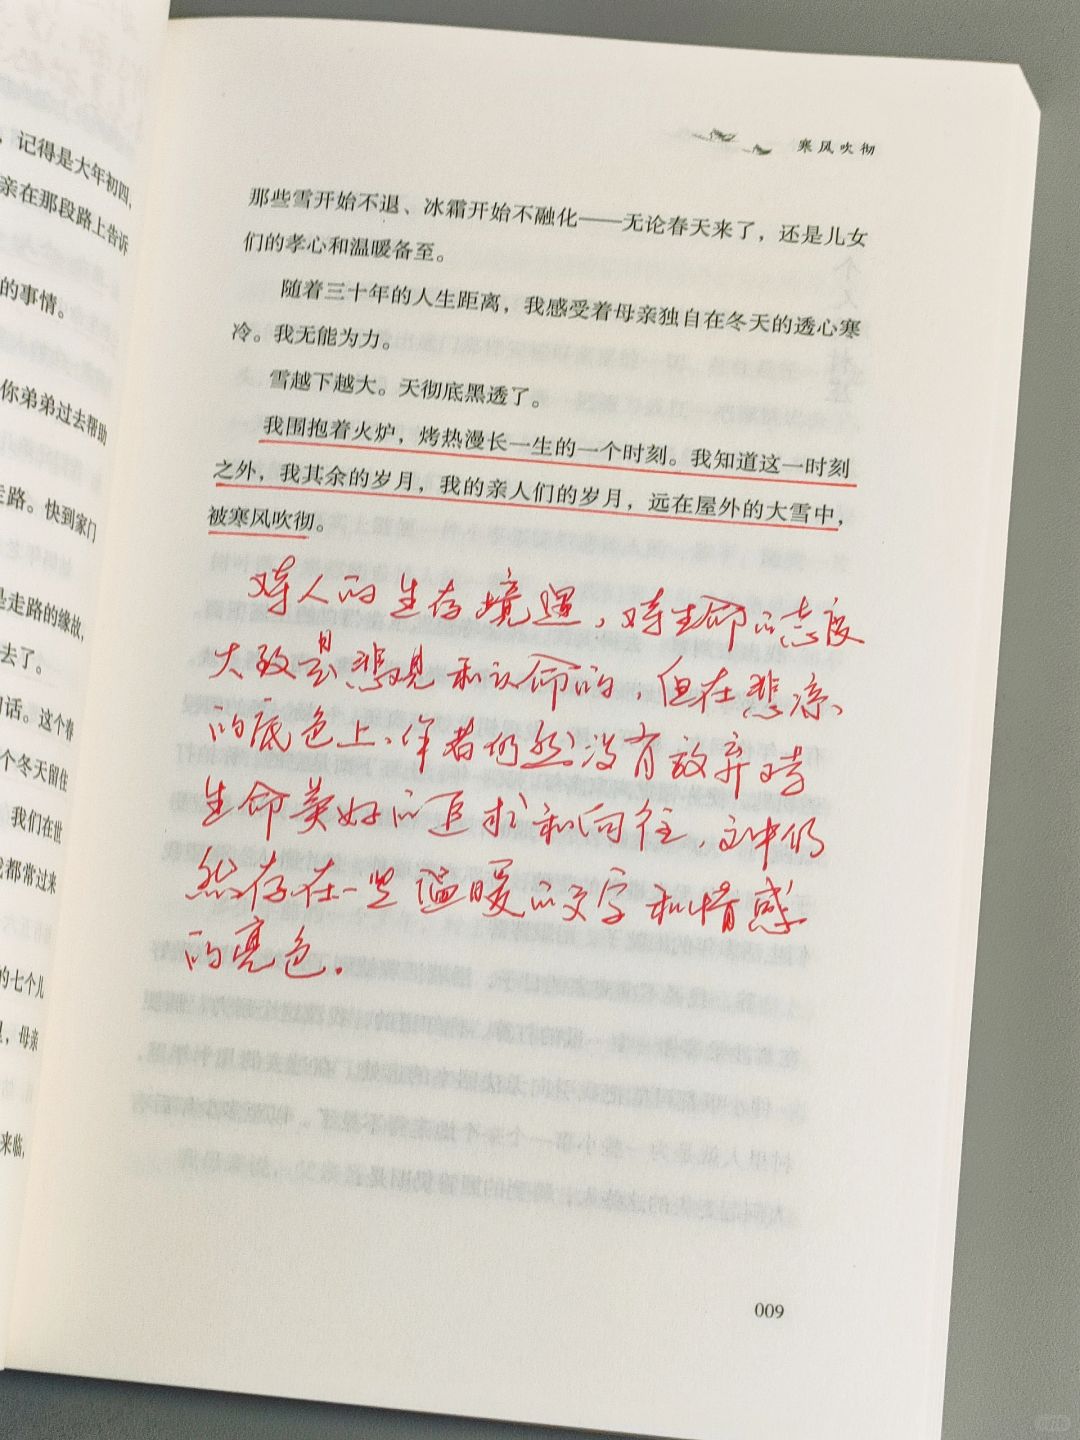 ，记得是大年初四，
亲在那段路上告诉
的事情。
你弟弟过去帮助
走路。快到家门
是走路的缘故，
去了。
句话。这个春
个冬天留住
我们在世
都常过来
的七个儿
，母亲
来临，
寒风吹彻
那些雪开始不退、冰霜开始不融化——无论春天来了，还是儿女
们的孝心和温暖备至。
随着三十年的人生距离，我感受着母亲独自在冬天的透心寒
冷。我无能为力。
雪越下越大。天彻底黑透了。
我围抱着火炉，烤热漫长一生的一个时刻。我知道这一时刻
之外，我其余的岁月，我的亲人们的岁月，远在屋外的大雪中，
被寒风吹彻。
对人的生存境遇，对生命的态度
大致是悲观和认命的，但在悲凉
的底色上，作者仍然没有放弃对
生命美好的追求和向往，文中仍
然存在一些温暖的文字和情感
的亮色。
009